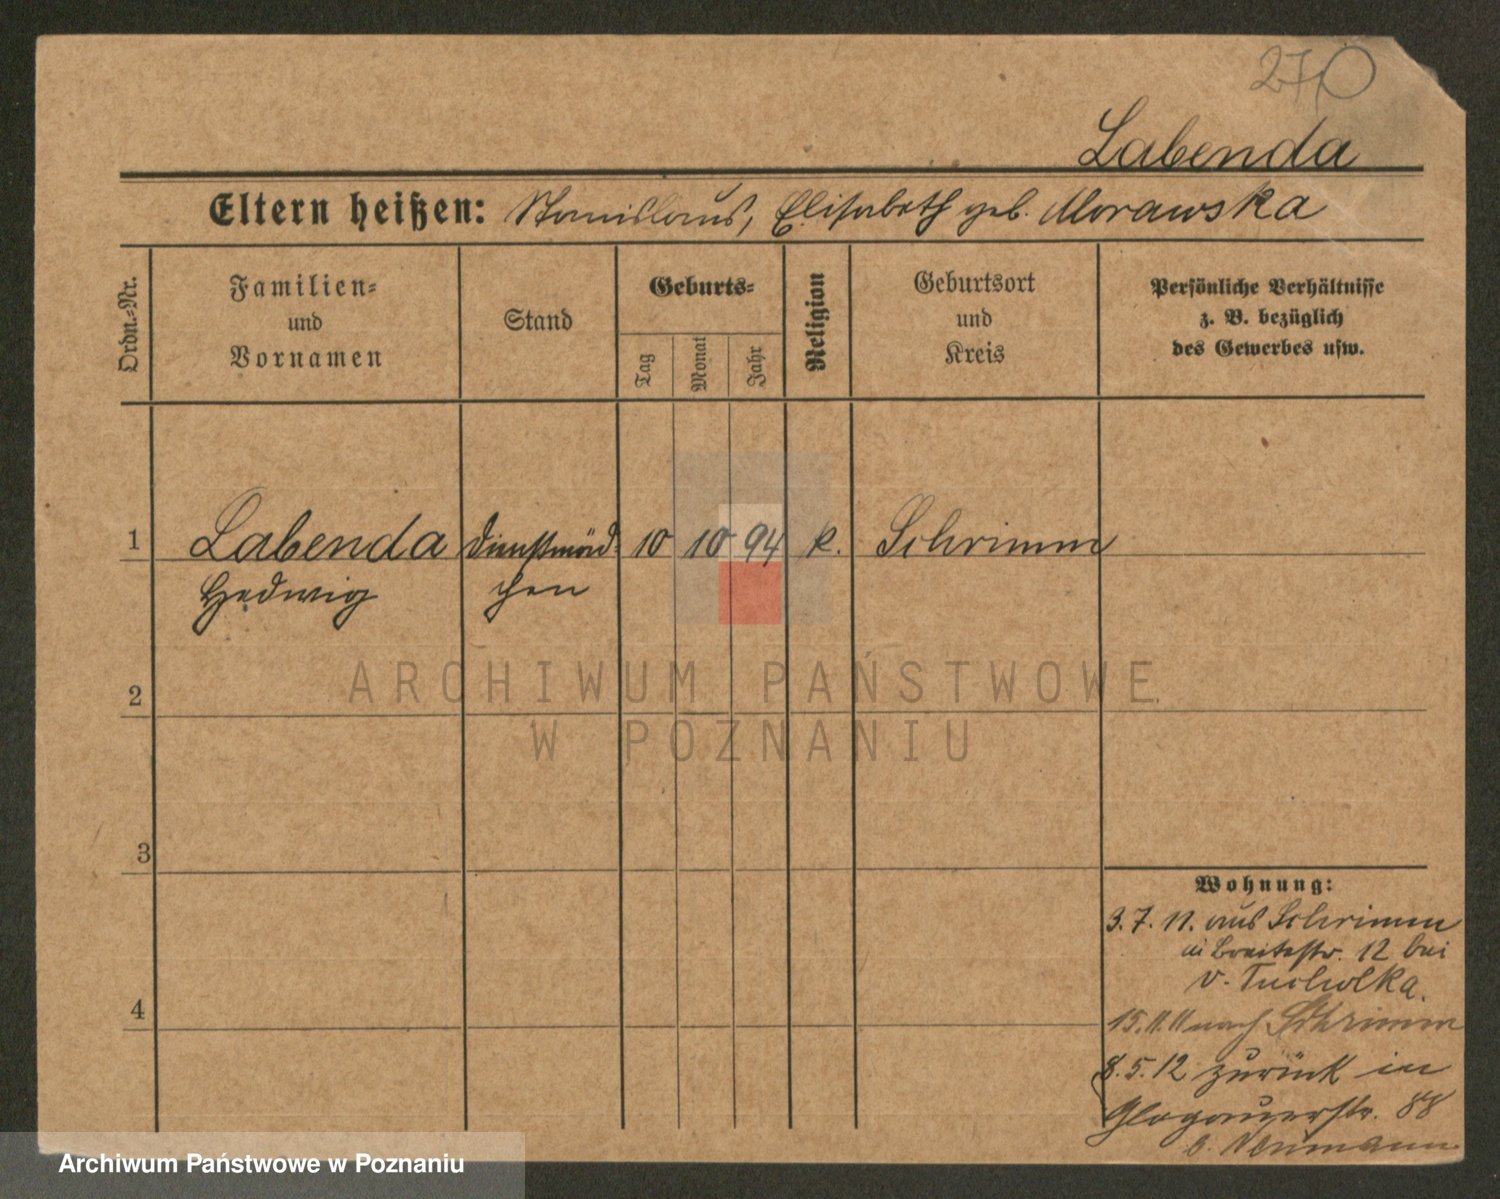 270
Labenda
Eltern heißen: Stanislaus, Elisabeth geb. Morawska
Ordn.-Nr.
Familien-
und
Vornamen
Stand
Geburts-
Tag
Monat
Jahr
Religion
Geburtsort
und
Kreis
Persönliche Verhältnisse
z. B. bezüglich
des Gewerbes usw.
1 Labenda Dienstmäd- 10 10 94 k. Schrimm
Hedwig chen
ARCHIWUM PAŃSTWOWE
W POZNANIU
2
3
4
Wohnung:
3. 7. 11. aus Schrimm
in Breitestr. 12 bei
v. Tucholka.
15. 11. 11 nach Schrimm
8. 5. 12 zurück in
Glogauerstr. 88
b. Neumann
Archiwum Państwowe w Poznaniu